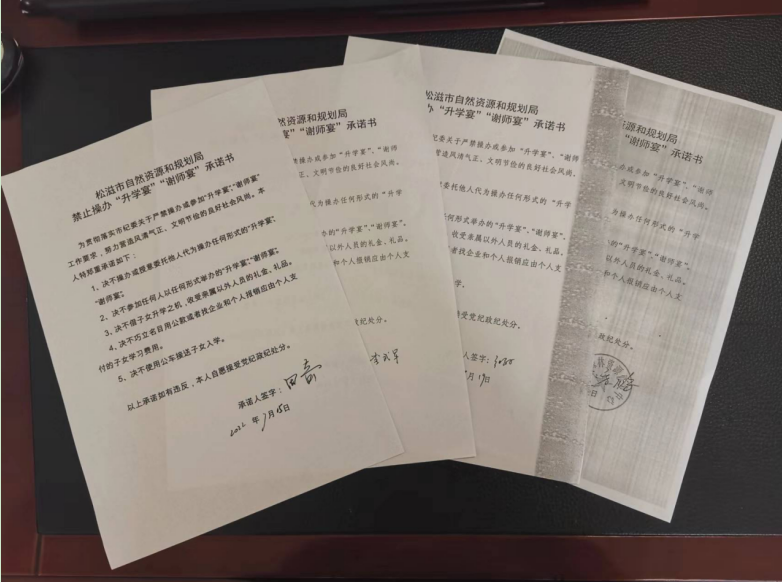 松滋市自然资源和规划局
禁止操办“升学宴”“谢师宴”承诺书
为贯彻落实市纪委关于严禁操办或参加“升学宴”、“谢师宴”
工作要求，努力营造风清气正、文明节俭的良好社会风尚。本
人特郑重承诺如下：
1、决不操办或授意委托他人代为操办任何形式的“升学宴”、
“谢师宴”；
2、决不参加任何人以任何形式举办的“升学宴”、“谢师宴”；
3、决不借子女升学之机，收受亲属以外人员的礼金、礼品。
4、决不巧立名目用公款或者找企业和个人报销应由个人支
付的子女学习费用。
5、决不使用公车接送子女入学。
以上承诺如有违反，本人自愿接受党纪政纪处分。
承诺人签字：
年7月18日
然资源和规划局
宴”“谢师宴”承诺书
操办或参加“升学宴”、“谢师
气正、文明节俭的良好社会风尚。
人代为操办任何形式的“升学
办的“升学宴”、“谢师宴”；
收受亲属以外人员的礼金、礼品。
企业和个人报销应由个人支
政纪处分。
松滋市自然资源和规划局
办“升学宴”“谢师宴”承诺书
纪委关于严禁操办或参加“升学宴”、“谢师
营造风清气正、文明节俭的良好社会风尚。
委托他人代为操办任何形式的“升学
何形式举办的“升学宴”、“谢师宴”；
收受亲属以外人员的礼金、礼品。
企业和个人报销应由个人支
学。
接受党纪政纪处分。
人签字：
月19日
源和规划局
“谢师宴”承诺书
操办或参加“升学宴”、“谢师
文明节俭的良好社会风尚。
为操办任何形式的“升学
的“升学宴”、“谢师宴”；
以外人员的礼金、礼品。
和个人报销应由个人支
政纪处分。